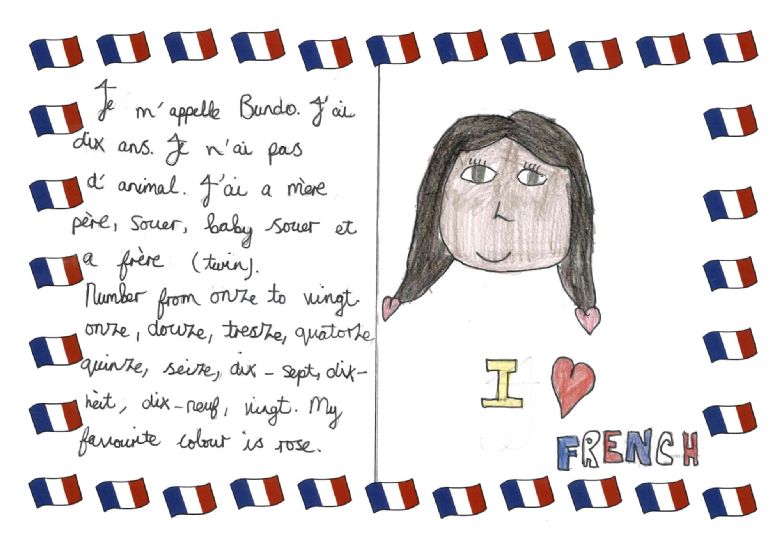 Je m'appelle Bundo. J'ai
dix ans. Je n'ai pas
d'animal. J'ai a mère
père, souer, baby souer et
a frère (twin).
Number from onze to vingt.
onze, douze, tresze, quatorze
quinze, seize, dix-sept, dix-
hèit, dix-neuf, vingt. My
favourite colour is rose.
I
FRENCH